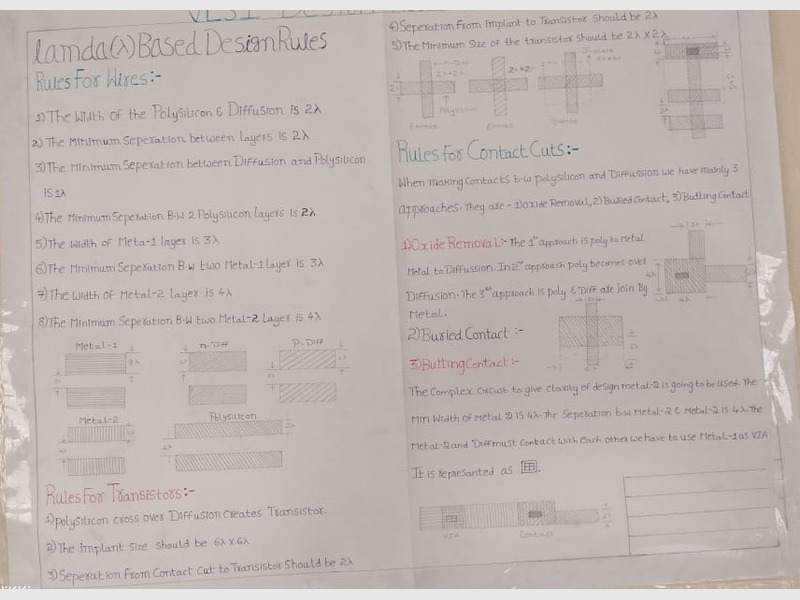 VLSI DESIGN
lamda(λ) Based Design Rules
Rules For Wires:-
1) The width of the PolySilicon & Diffusion is 2λ
2) The Minimum Seperation between layers is 2λ
3) The Minimum Seperation between Diffusion and Polysilicon
is 1λ
4) The Minimum Seperation B.W 2 Polysilicon layers is 2λ
5) The width of Meta-1 layer is 3λ
6) The Minimum Seperation B.W two Metal-1 Layer is 3λ
7) The width of Metal-2 layer is 4λ
8) The Minimum Seperation B.W two Metal-2 Layer is 4λ
Metal-1
n-Diff
P-Diff
Metal-2
Polysilicon
Rules For Transistors:-
1) polysilicon cross over Diffusion creates Transistor.
2) The implant size should be 6λ x 6λ
3) Seperation From Contact Cut to Transistor Should be 2λ
4) Seperation From implant to Transistor Should be 2λ
5) The Minimum Size of the transistor should be 2λ x 2λ
2λ×2λ
2λ×2λ
Polysilicon
Rules for Contact Cuts:-
When making Contacts b.w polysilicon and Diffussion we have mainly 3
approaches. They are - 1) Oxide Removal, 2) Buried Contact, 3) Butting Contact
1) Oxide Removal:- The 1st approach is poly to Metal
Metal to Diffussion. In 2nd approach poly becomes over
Diffusion. The 3rd approach is poly & Diff are join By
Metal.
4λ
4λ
2) Buried Contact :-
3) Butting Contact:-
The Complex Circuit to give clarity of design metal-2 is going to be used. The
Min Width of Metal 2 is 4λ. The Seperation b.w Metal-2 & Metal-2 is 4λ. The
Metal-2 and Diff must Contact with Each other we have to use Metal-1 as VIA
It is represanted as
VIA
Contact